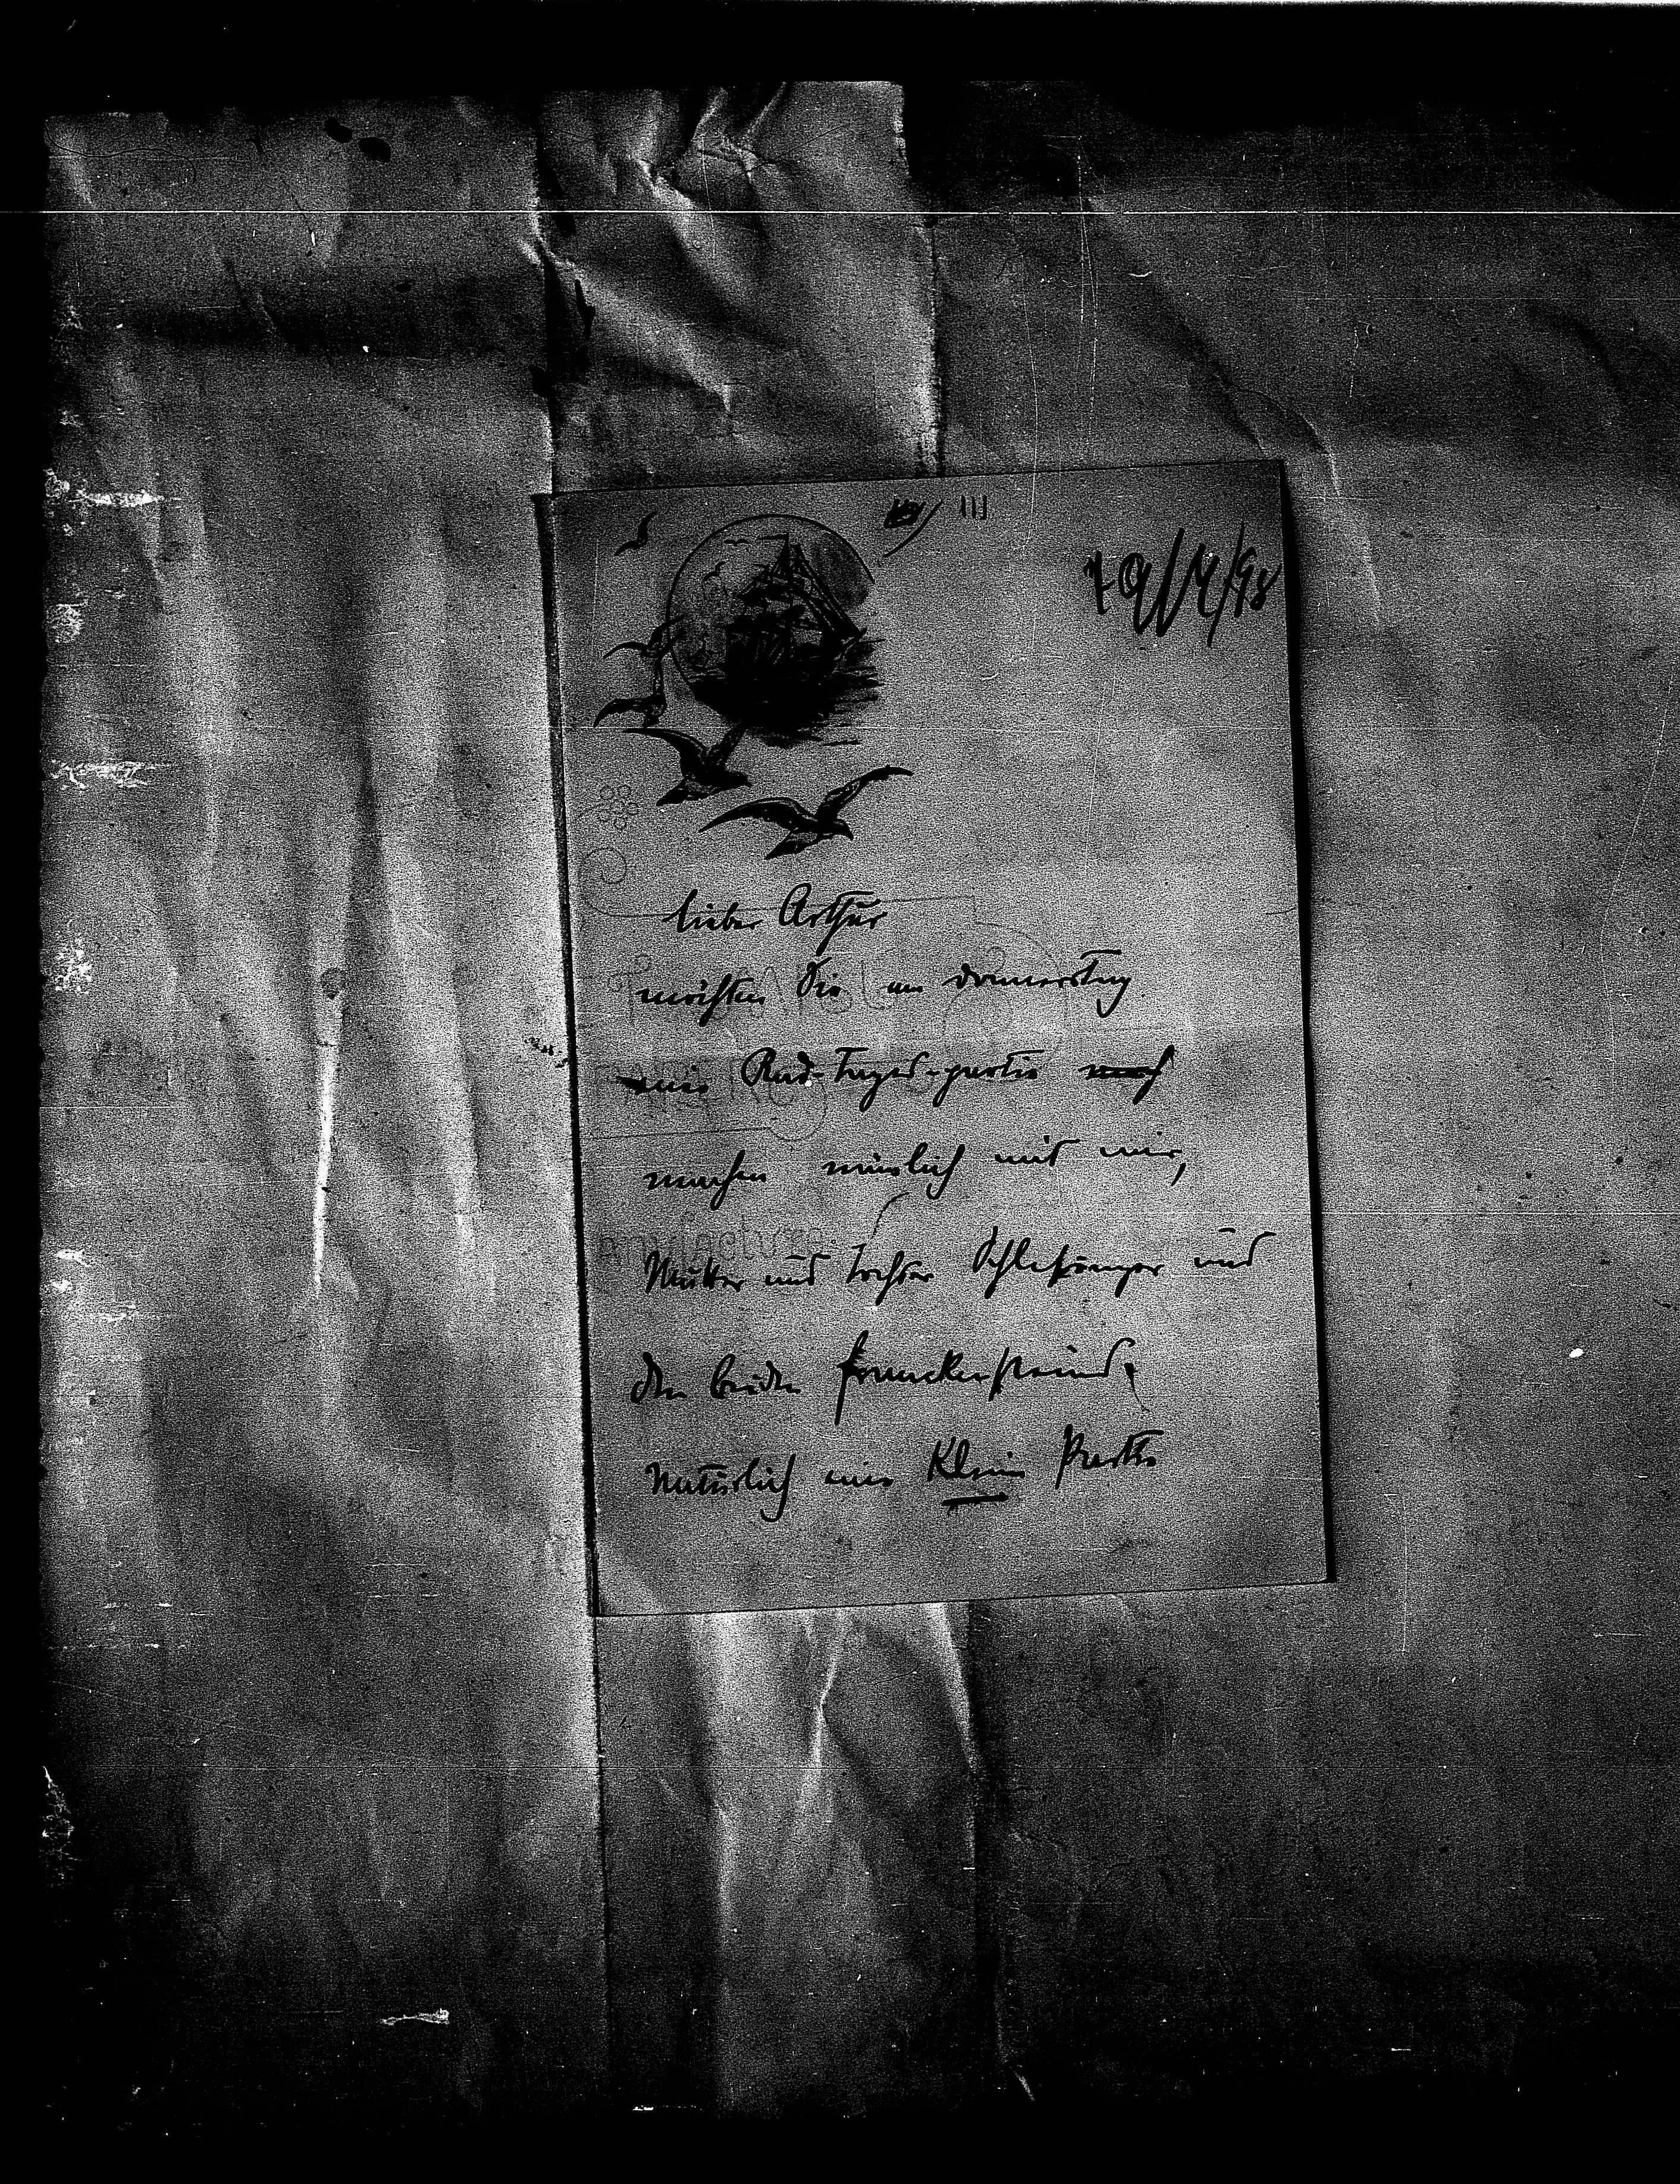 III
lieber Arthur
möchten Sie am Donnerstag
eine Rad-Tages-partie
machen nämlich mit mir,
Mutter und Tochter Schlesinger und
den beiden
Natürlich eine Kleine Partie